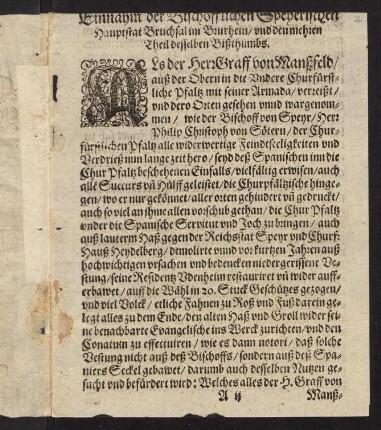 Einnahm der Bischofflichen Speyerischen
Hauptstat Bruchsal im Brurhein/ vnd den mehren
Theil desselben Bißthumbs.
ALs der Herr Graff von Manßfeld/
auß der Obern in die Vndere Churfürst-
liche Pfaltz mit seiner Armada/ verreißt/
vnd dero Orten gesehen vnnd wargenom-
men/ wie der Bischoff von Speyr/ Herr
Philip Christoph von Sötern/ der Chur-
fürstlichen Pfaltz alle widerwertige Feindtseeligkeiten vnd
Verdrieß nun lange zeit hero/ seyd deß Spanischen inn die
Chur Pfaltz beschehenen Einfalls/ vielfältig erwisen/ auch
alle Succurs vñ Hülff geleistet/ die Churpfältzische hinge-
gen/ wo er nur gekönnet/ aller orten gehindert vñ gedruckt/
auch so viel an ihme allen vorschub gethan/ die Chur Pfaltz
vnder die Spanische Servitut vnd Joch zu bringen/ auch
auß lauterm Haß gegen der Reichsstat Speyr vnd Churf:
Hauß Heydelberg/ demolirte vnnd vor kurtzen Jahren auß
hochwichtigen vrsachen vnd bedencken nidergerissene Ve-
stung/ seine Residentz Vdenheim restauriret vñ wider auff-
erbawet/ auff die Wähl in 20. Stuck Geschützes gezogen/
vnd viel Volck/ etliche Fahnen zu Roß vnd Fuß darein ge-
legt alles zu dem Ende/ den alten Haß vnd Groll wider sei-
ne benachbarte Evangelische ins Werck zurichten/ vnd den
Conatum zu effectuiren/ wie es dann notori/ daß solche
Vestung nicht auß deß Bischoffs/ sondern auß deß Spa-
niers Seckel gebawet/ darumb auch desselben Nutzen ge-
sucht vnd befürdert wird: Welches alles der H. Graff von
A ij Manß-